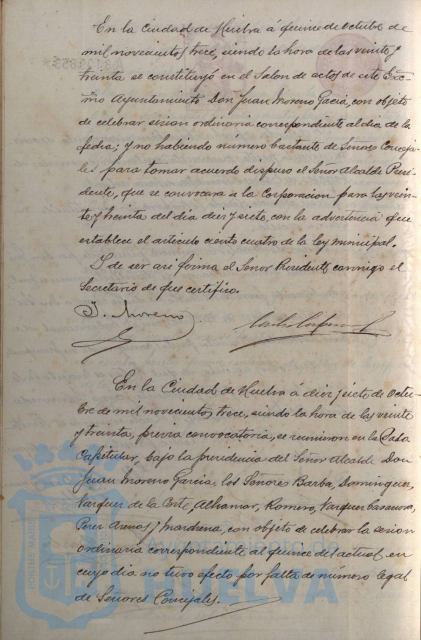 En la Ciudad de Huelva á quince de Octubre de
mil novecientos trece, siendo la hora de las veinte y
treinta se constituyó en el Salon de actos de este Exc-
mo Ayuntamiento Don Juan Moreno Garcia, con objeto
de celebrar sesion ordinaria correspondiente al dia de la
fecha; y no habiendo numero bastante de Señores Conceja-
les para tomar acuerdo dispuso el Señor Alcalde Presi-
dente, que se convocara a la Corporacion para las vein-
te y treinta del dia diez y siete, con la advertencia que
establece el articulo ciento cuatro de la ley municipal.
Y de ser asi firma el Señor Presidente conmigo el
Secretario de que certifico.
J. Moreno
En la Ciudad de Huelva á diez y siete de Octu-
bre de mil novecientos trece, siendo la hora de las veinte
y treinta, previa convocatoria, se reunieron en la Casa
Capitular, bajo la presidencia del Señor Alcalde Don
Juan Moreno Garcia, los Señores Barba, Dominguez,
Vazquez de la Corte, Alhamar, Romero, Vazquez Casanova,
Perez Arenas y Mardena, con objeto de celebrar la sesion
ordinaria correspondiente al quince del actual, en
cuyo dia no tuvo efecto por falta de número legal
de Señores Concejales.
HUELVA